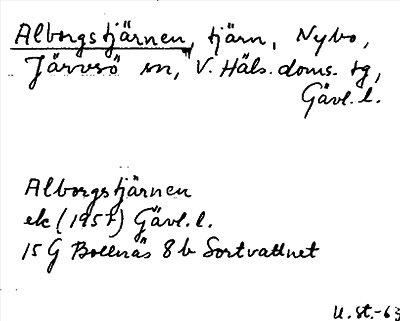 Alborgstjärnen, tjärn, Nybo,
Järvsö sn, V. Häls. doms. tg,
Gävl. l.
Alborgstjärnen
ek (1957) Gävl. l.
15 G Bollnäs 8 b Sortvattnet
U. St. -63